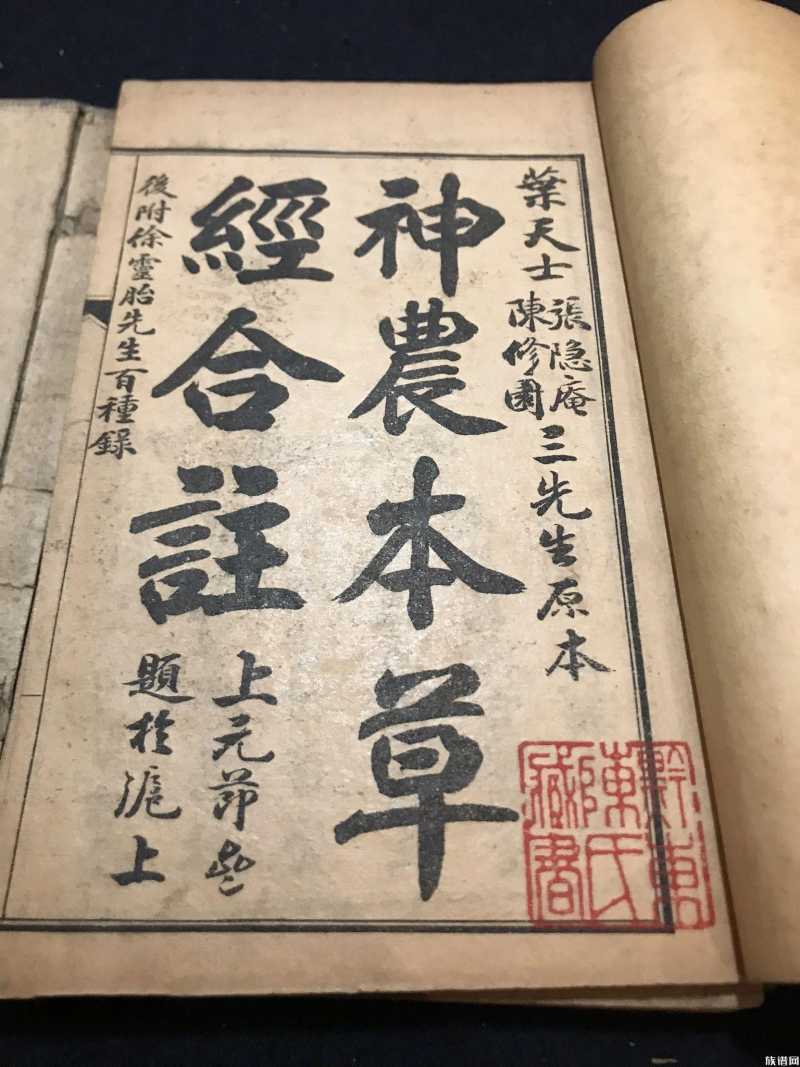 葉天士
張隐庵
陳修園
三先生原本
神農本草
經合註
上元節
題於滬上
後附徐靈胎先生百種錄
黔東
陳氏
藏書
族谱网